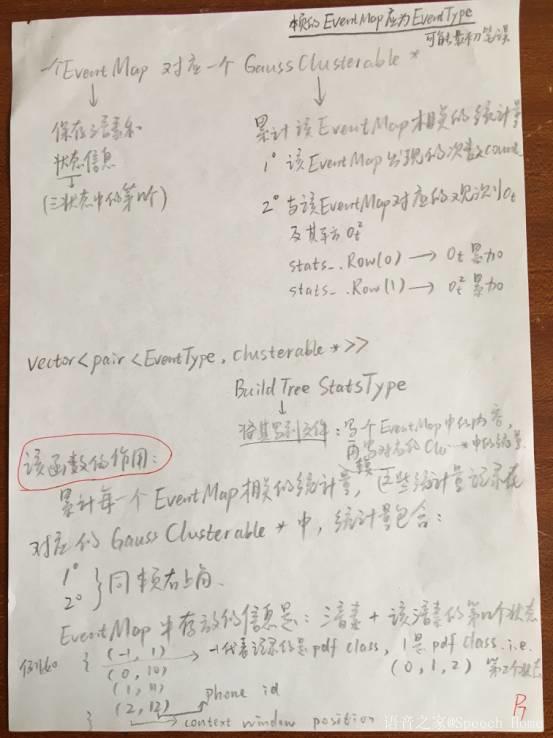 本页的EventMap应为EventType
可能是初笔误
一个EventMap 对应一个 GaussClusterable *
保存三音素和
状态信息
(三状态中的第几个)
累计该EventMap相关的统计量
1° 该EventMap出现的次数count
2° 与该EventMap对应的观测到Ot
及其平方 Ot²
stats_.Row(0) → Ot 累加
stats_.Row(1) → Ot² 累加
vector<pair<EventType, clusterable *>>
BuildTreeStatsType
将其写到文件：写个EventMap中的内容，
再写对应的Clu…*中的统计量
该函数的作用：
累计每一个EventMap相关的统计量，这些统计量记录在
对应的GaussClusterable *中，统计量包含：
1°
2° } 同本页右上角.
EventMap中存放的信息是：三音素 + 该音素的第几个状态
例如 { (-1, 1) → -1代表记录的是pdf class, 1是pdf class i.e.
(0, 10) (0, 1, 2) 第2个状态
(1, 11) phone id
(2, 12)
} context window position
语音之家@Speech Home